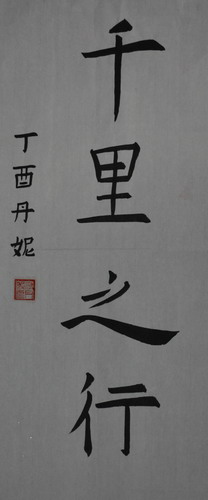 千里之行
丁酉丹妮